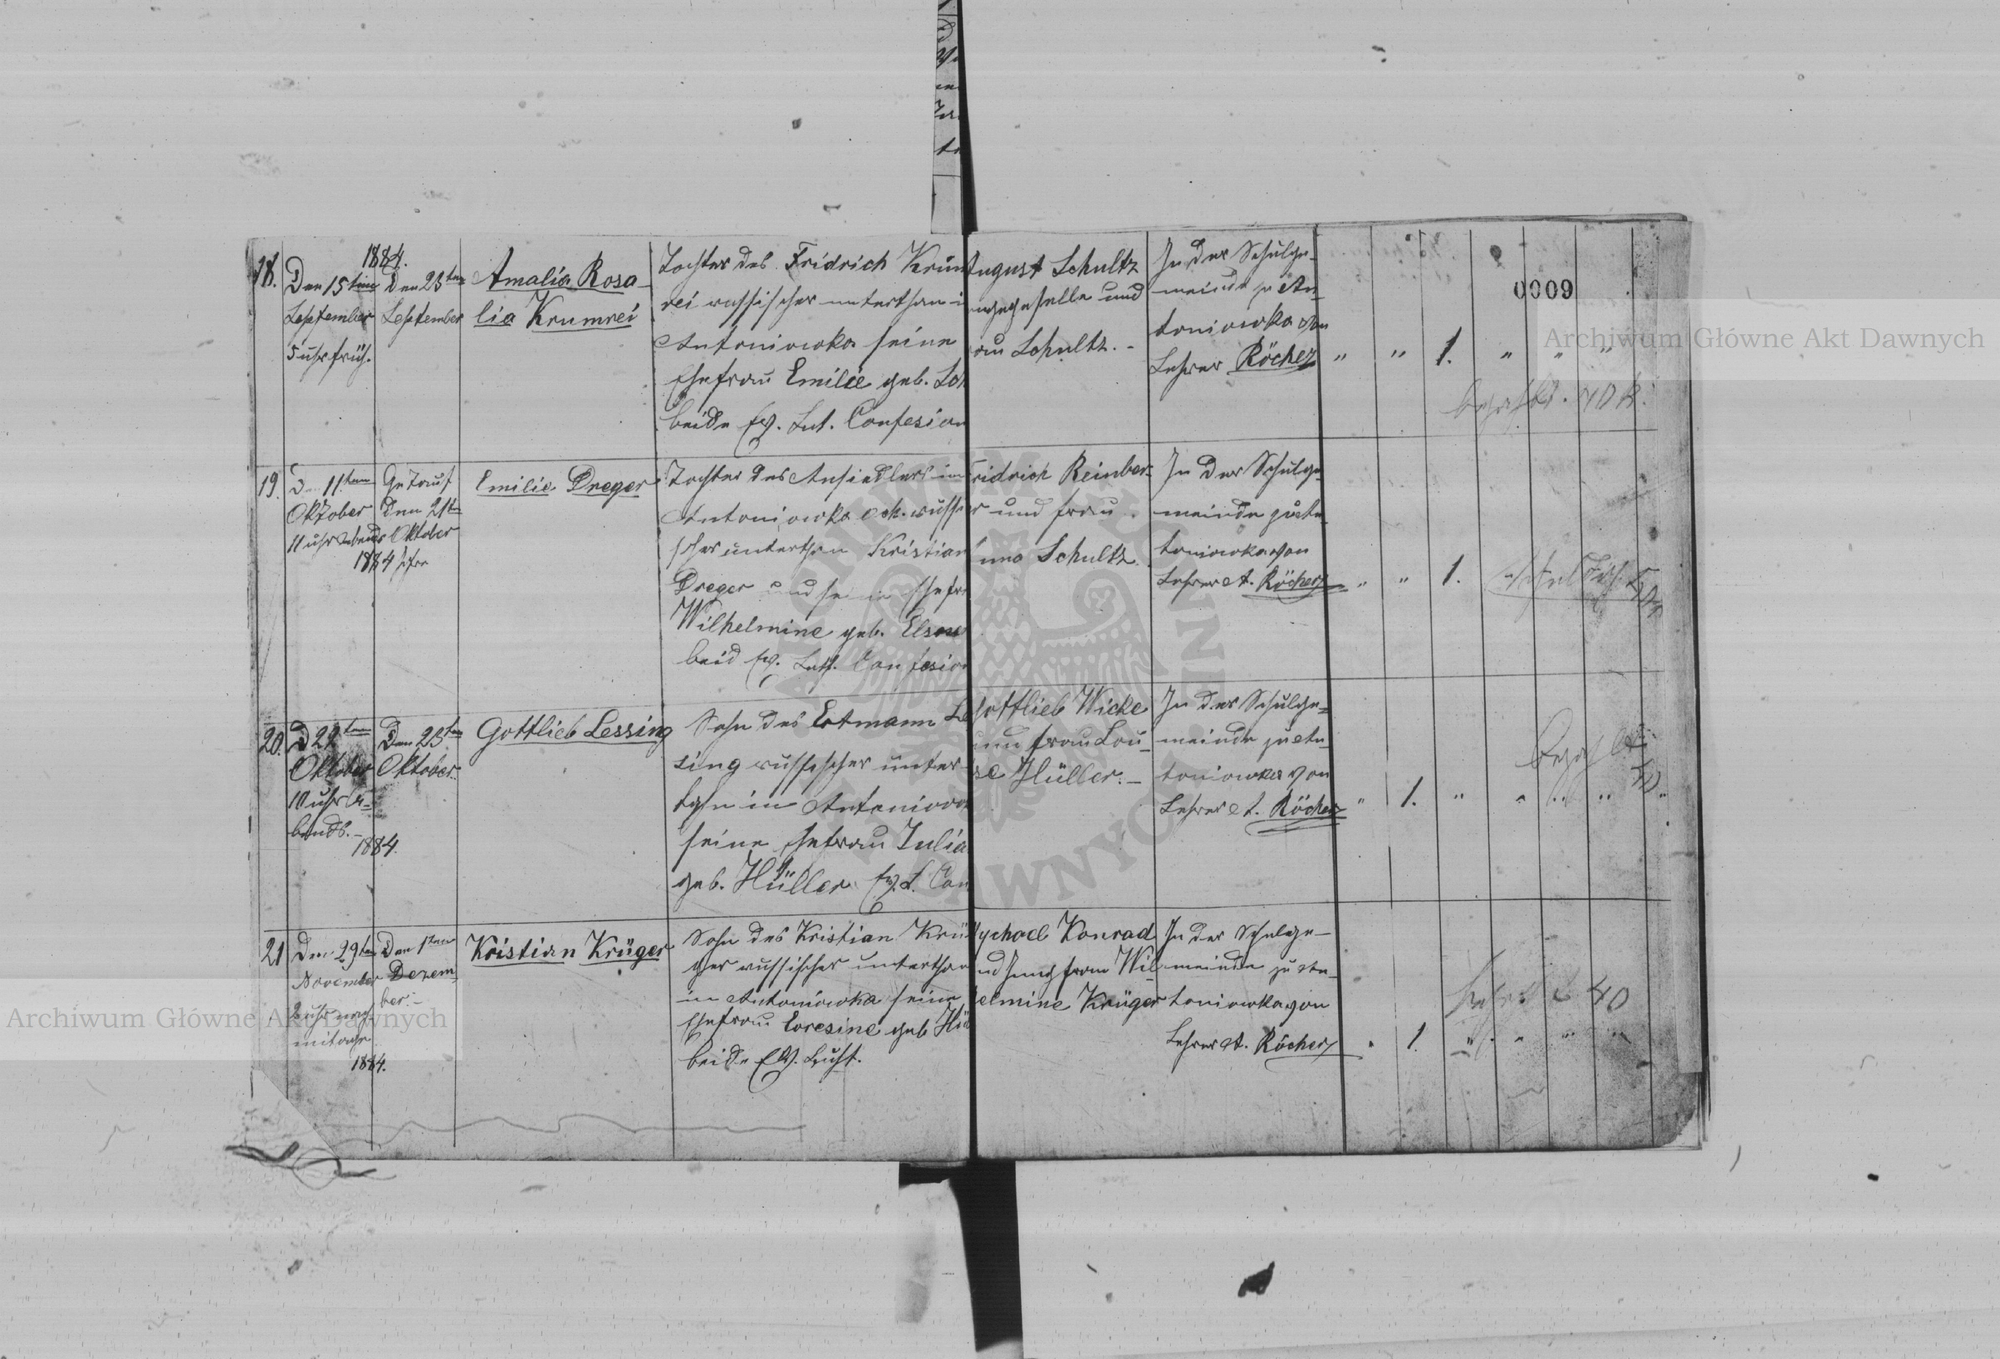 0009
18.
1884.
Den 15ten
September
5 uhr früh.
Den 23ten
September
Amalia Rosa-
lia Krumrei
Tochter des Fridrich Krum
rei russischer unterthan i
Antoniowka seine
Ehefrau Emilie geb. Sch
beide Ev. Lut. Confesion
August Schultz
geselle und
Schultz. -
In der Schulge-
meinde zu An-
toniowka von
Lehrer Röcher
" " 1. " " "
bezahlt. 40 k.
19.
D 11ten
Oktober
11 uhr Abends
Getauf
Den 21ten
Oktober
1884
Emilie Dreger
Tochter des Ansiedlers in
Antoniowka russi
scher unterthan Kristian
Dreger und seine Ehefr
Wilhelmine geb. Elsner
beid Ev. Lut. Confesion
ridrich Reinber
und frau
Schultz.
In der Schulge-
meinde zu An-
toniowka von
Lehrer A. Röcher
" " 1.
20.
D 22ten
Oktober
10 uhr A-
bends.-
1884.
Den 23ten
Oktober.
Gottlieb Lessing
Sohn des Ertmann Le
sing russischer unter
than in Antoniow
seine Ehefrau Julia
geb. Hüller Ev. L. Con
Gottlieb Wicke
und frau Lou-
se Hüller. -
In der Schulge-
meinde zu An-
toniowka von
Lehrer A. Röcher
" 1. " " " "
bezahlt
21
Den 29ten
November
2 uhr nach
mitage
1884.
Den 1ten
Dezem-
ber.-
Kristian Krüger
Sohn des Kristian Krü
ger russischer unterthan
in Antoniowka seine
Ehefrau Eoresine geb Hü
beide Ev. Luth.
ychael Konrad
nd Jungfrau Wil
elmine Krüger
In der Schulge-
meinde zu An-
toniowka von
Lehrer A. Röcher
" 1. " " " "
40
Archiwum Główne Akt Dawnych
Archiwum Główne Akt Dawnych